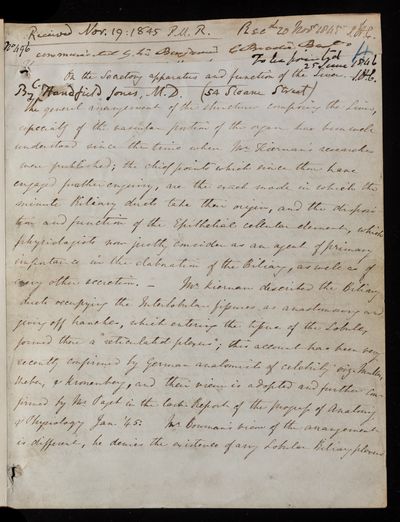 Received Nov. 19. 1845 P.M.R. Recd 20 Novr 1845
No 496
communicated by Sir Benjamin C Brodie, Bart
To be printed
25 June 1846
On the Secretory apparatus and function of the Liver.
By C. Handfield Jones, M.D. (54 Sloane Street)
The general arrangement of the structures composing the Liver,
especially of the vascular portion of the organ has been well
understood since the time when Mr Kiernan's researches
were published; the chief points which since then have
engaged further enquiry, are the exact mode in which the
minute Biliary ducts take their origin, and the disposi-
tion and function of the Epithelial cellular element, which
physiologists now justly consider as an agent of primary
importance in the elaboration of the Biliary, as well as of
every other secretion. — Mr Kiernan described the Biliary
ducts occupying the Interlobular fissures as anastomosing and
giving off branches, which entering the tissue of the Lobules,
formed there a "reticulated plexus"; this account has been very
recently confirmed by German anatomists of celebrity viz. Muller,
Weber, & Kronenberg, and their view is adopted and further con-
firmed by Mr Paget in the last Report of the progress of Anatomy
& Physiology Jan. '45. Mr Bowman's view of the arrangement
is different, he denies the existence of any Lobular Biliary plexus